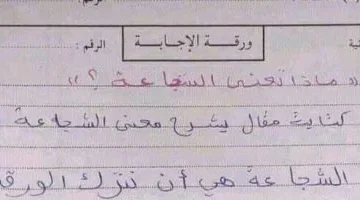 رقم:
ورقة الإجابة الرقم:
« ماذا تعني الشجاعة ؟ »
كتابة مقال يشرح معنى الشجاعة
الشجاعة هي أن نترك الورقة